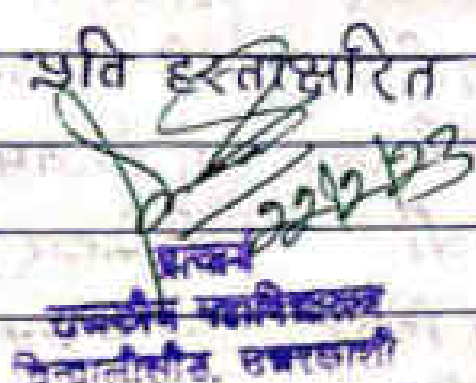 प्रति हस्ताक्षरित
22/2/23
प्राचार्य
राजकीय महाविद्यालय
चिन्यालीसौड, उत्तरकाशी